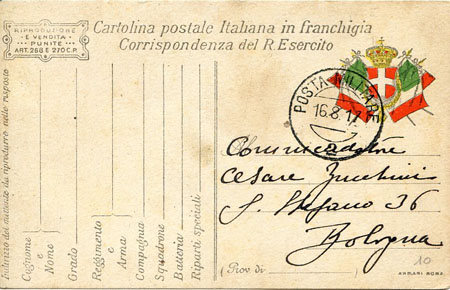 RIPRODUZIONE
E VENDITA
PUNITE
ART. 268 E 270 C.P.
Cartolina postale Italiana in franchigia
Corrispondenza del R. Esercito
POSTA MILITARE
16.8.17
Commendatore
Cesare Zucchini
S. Stefano 36
Bologna
(Prov. di
10
Indirizzo del mittente da riprodurre nelle risposte
Cognome e
Nome
Grado
Reggimento
e
Arma
Compagnia
Squadrone
Batteria
Riparti speciali